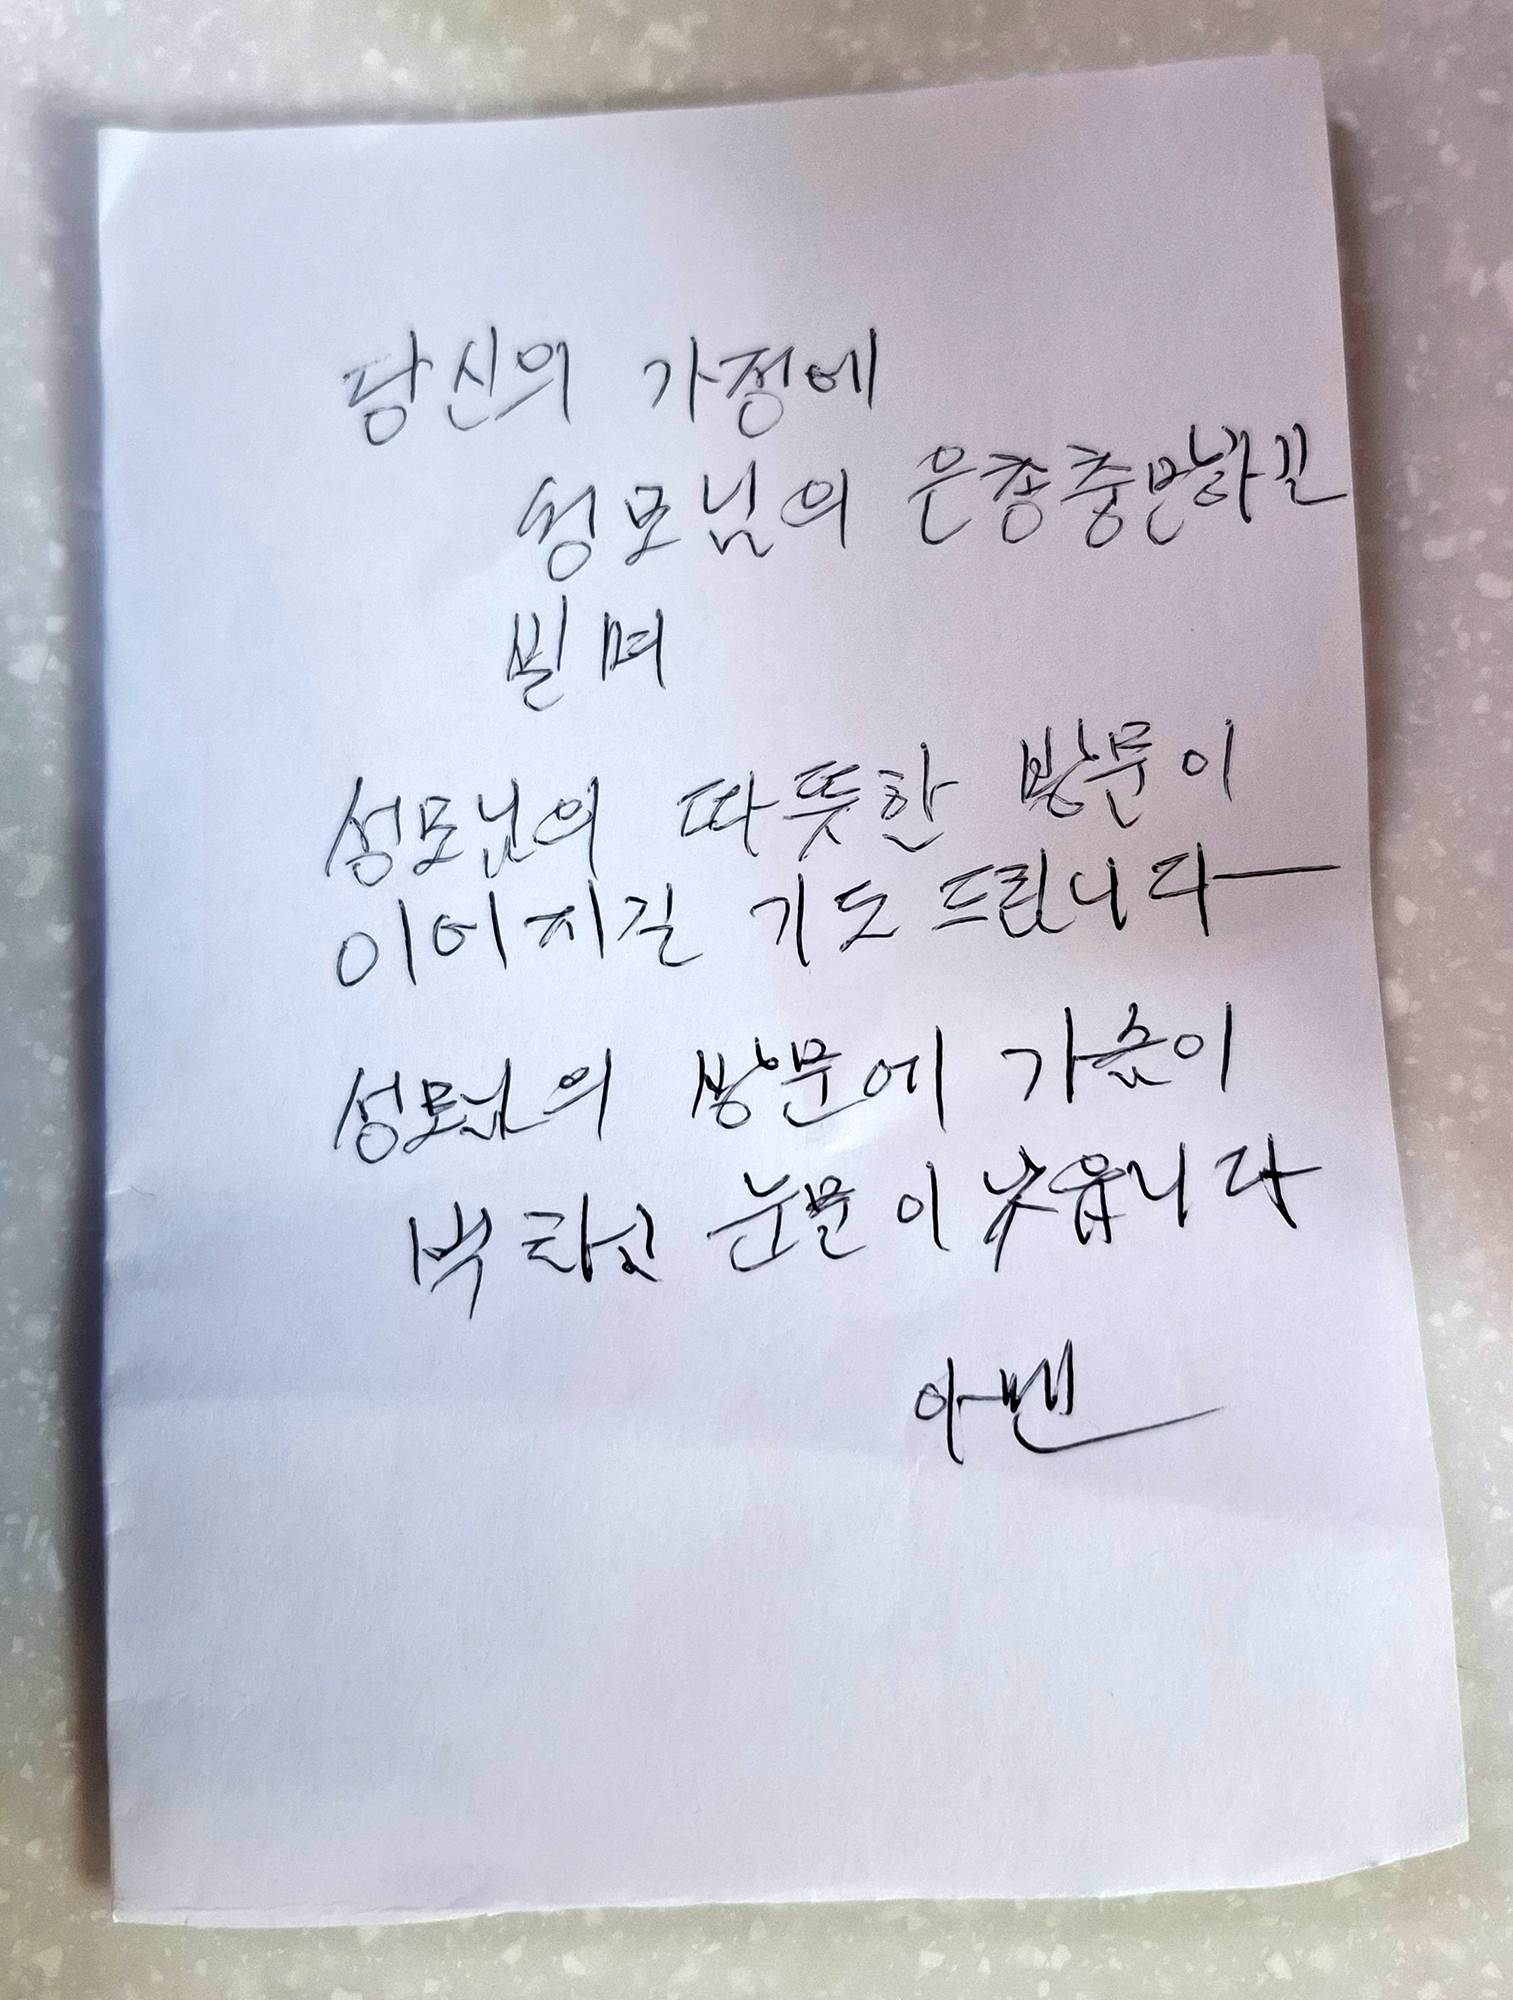 당신의 가정에
성모님의 은총충만하길
빌며
성모님의 따뜻한 방문이
이어지길 기도드립니다
성모님의 방문에 가슴이
벅차고 눈물이
아멘